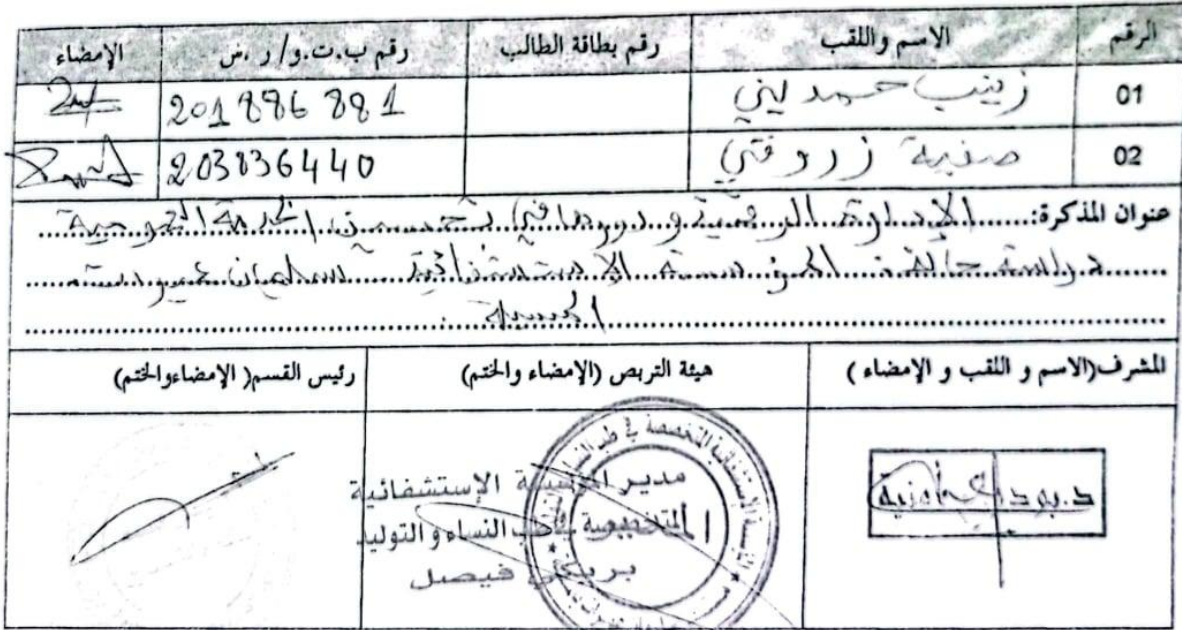 الرقم الاسم واللقب رقم بطاقة الطالب رقم ب.ت.و/ ر .س الإمضاء
01 زينب حمديني 201886881
02 صفية زروقي 203836440
عنوان المذكرة: الإدارة الرقمية ودورها في تحسين الخدمة العمومية
دراسة حالة المؤسسة الاستشفائية سليمان عميرات
المسيلة
المشرف(الاسم و اللقب و الإمضاء ) هيئة التربص (الإمضاء والختم) رئيس القسم( الإمضاءوالختم)
مدير المؤسسة الإستشفائية
المتخصصة طب النساء والتوليد
فيصل